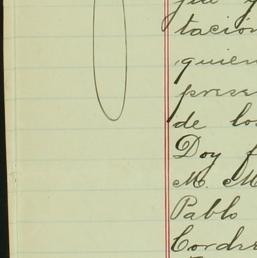 que y
tacion
quien
prese
de los
Doy f
M. M
Pablo
Corde